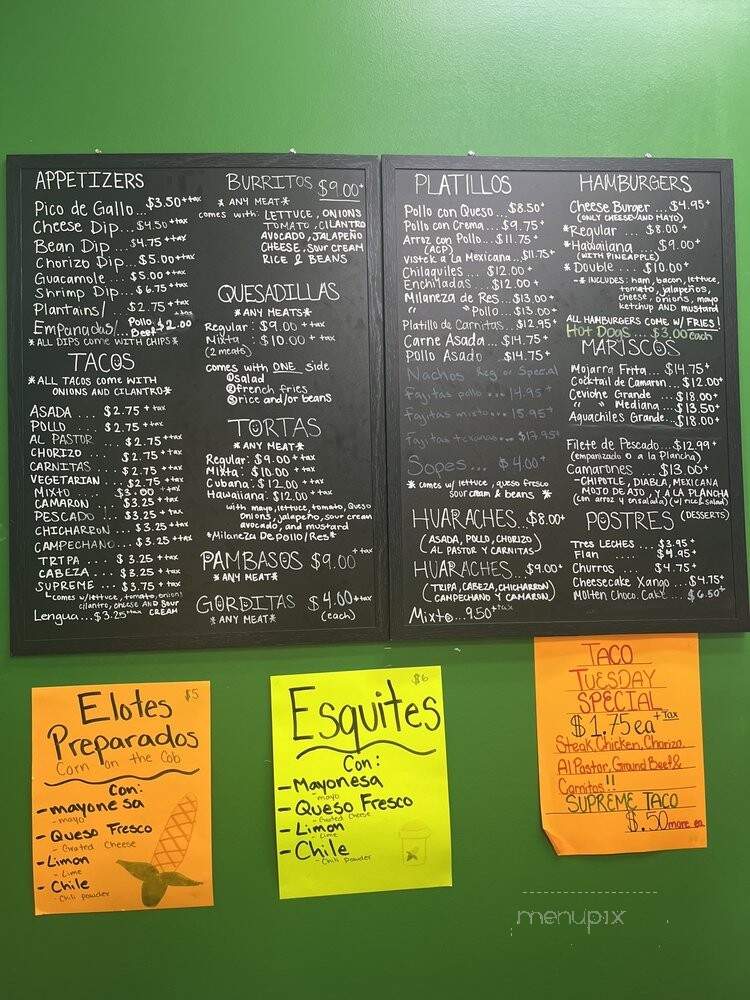 APPETIZERS
Pico de Gallo...$3.50++tax
Cheese Dip...$4.50++tax
Bean Dip...$4.75++tax
Chorizo Dip...$5.00++tax
Guacamole...$5.00++tax
Shrimp Dip...$6.75++tax
Plantains/...$2.75++tax
Empanadas/... Pollo Beef $2.00
*ALL DIPS COME WITH CHIPS*
TACOS
*ALL TACOS COME WITH
ONIONS AND CILANTRO*
ASADA ... $2.75++tax
POLLO ... $2.75++tax
AL PASTOR ... $2.75++tax
CHORIZO ... $2.75++tax
CARNITAS ... $2.75++tax
VEGETARIAN ... $2.75++tax
MIXTO ... $3.00++tax
CAMARON ... $3.25++tax
PESCADO ... $3.25++tax
CHICHARRON ... $3.25++tax
CAMPECHANO ... $3.25++tax
TRIPA ... $3.25++tax
CABEZA ... $3.25++tax
SUPREME ... $3.75++tax
comes w/lettuce, tomato, onion,
cilantro, cheese AND SOUR CREAM
Lengua...$3.25++tax
BURRITOS $9.00+
* ANY MEAT*
comes with: LETTUCE, ONIONS
TOMATO, CILANTRO
AVOCADO, JALAPEÑO
CHEESE, SOUR CREAM
RICE & BEANS
QUESADILLAS
*ANY MEATS*
Regular: $9.00++tax
Mixta: $10.00++tax
(2 meats)
comes with ONE side
①salad
②french fries
③rice and/or beans
TORTAS
*ANY MEAT*
Regular: $9.00++tax
Mixta: $10.00++tax
Cubana: $12.00++tax
Hawaiiana: $12.00++tax
with mayo, lettuce, tomato, Queso
onions, jalapeño, sour cream
avocado, and mustard
*Milaneza De Pollo/Res*
PAMBASOS $9.00++tax
*ANY MEAT*
GORDITAS $4.00++tax
*ANY MEAT* (each)
PLATILLOS
Pollo con Queso...$8.50+
Pollo con Crema...$9.75+
Arroz con Pollo...$11.75+
(ACP)
Vistek a La Mexicana...$11.75+
Chilaquiles ... $12.00+
Enchiladas ... $12.00+
Milaneza de Res...$13.00+
" " Pollo...$13.00+
Platillo de Carnitas...$12.95+
Carne Asada ... $14.75+
Pollo Asado ... $14.75+
Nachos Reg or Special
Fajitas pollo ... 14.95+
Fajitas mixto ... 15.95+
Fajitas texanas ... $17.95+
Sopes ... $4.00+
*comes w/ lettuce, queso fresco
sour cream & beans *
HUARACHES ..$8.00+
(ASADA, POLLO, CHORIZO
AL PASTOR Y CARNITAS)
HUARACHES ..$9.00+
(TRIPA, CABEZA, CHICHARRON
CAMPECHANO Y CAMARON)
Mixto...9.50+tax
HAMBURGERS
Cheese Burger ...$4.95+
(ONLY CHEESE AND MAYO)
*Regular ... $8.00+
*Hawaiiana ... $9.00+
(WITH PINEAPPLE)
* Double ... $10.00+
-* INCLUDES: ham, bacon, lettuce,
tomato, jalapeños,
cheese, onions, mayo
ketchup AND mustard
ALL HAMBURGERS COME W/ FRIES!
Hot Dogs ... $3.00 each
MARISCOS
Mojarra Frita...$14.75+
Cocktail de Camaron...$12.00+
Ceviche Grande ...$18.00+
" " Mediana ...$13.50+
Aguachiles Grande...$18.00+
Filete de Pescado...$12.99+
(empanizado o a la Plancha)
Camarones ... $13.00+
-CHIPOTLE, DIABLA, MEXICANA
MOJO DE AJO, Y A LA PLANCHA
(con arroz y ensalada) (w/ rice, salad)
POSTRES (DESSERTS)
Tres LECHES ... $3.95+
Flan ... $4.95+
Churros ... $4.75+
Cheesecake Xango...$4.75+
Molten Choco. Cake...$6.50+
$5
Elotes
Preparados
Corn on the Cob
Con:
-mayonesa
-mayo
-Queso Fresco
-Grated Cheese
-Limon
-Lime
-Chile
-Chili powder
$6
Esquites
Con:
-Mayonesa
-mayo
-Queso Fresco
-Grated Cheese
-Limon
-Lime
-Chile
-Chili powder
TACO
TUESDAY
SPECIAL
$1.75ea+Tax
Steak, Chicken, Chorizo
Al Pastor, Ground Beef &
Carnitas!!
SUPREME TACO
$.50 more ea
menupix